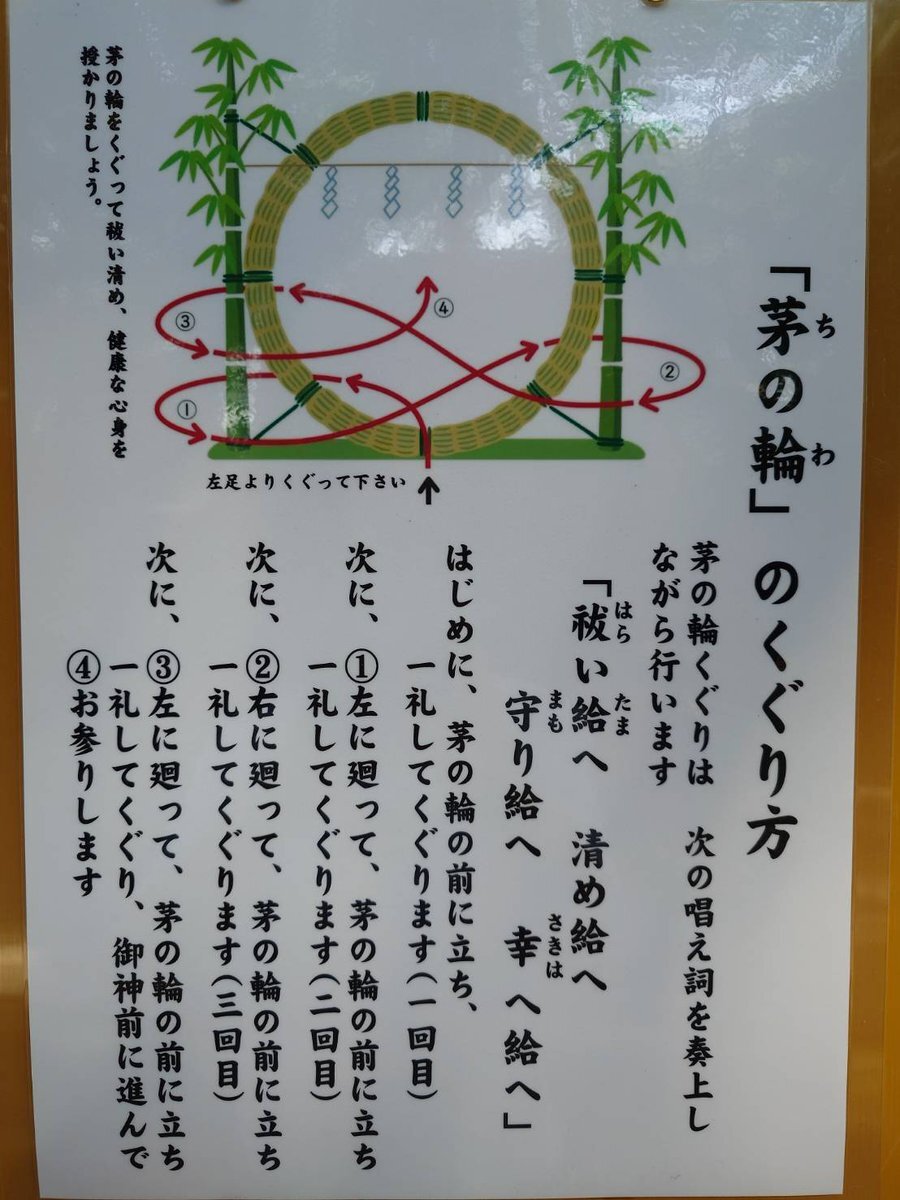 「茅の輪」のくぐり方
ちわ
茅の輪くぐりは　次の唱え詞を奏上し
ながら行います
「祓い給へ　清め給へ
はらたま
守り給へ　幸へ給へ」
まもさきは
はじめに、茅の輪の前に立ち、
一礼してくぐります(一回目)
次に、①左に廻って、茅の輪の前に立ち
一礼してくぐります(二回目)
次に、②右に廻って、茅の輪の前に立ち
一礼してくぐります(三回目)
次に、③左に廻って、茅の輪の前に立ち
一礼してくぐり、御神前に進んで
④お参りします
茅の輪をくぐって祓い清め、健康な心身を
授かりましょう。
③
④
②
①
左足よりくぐって下さい